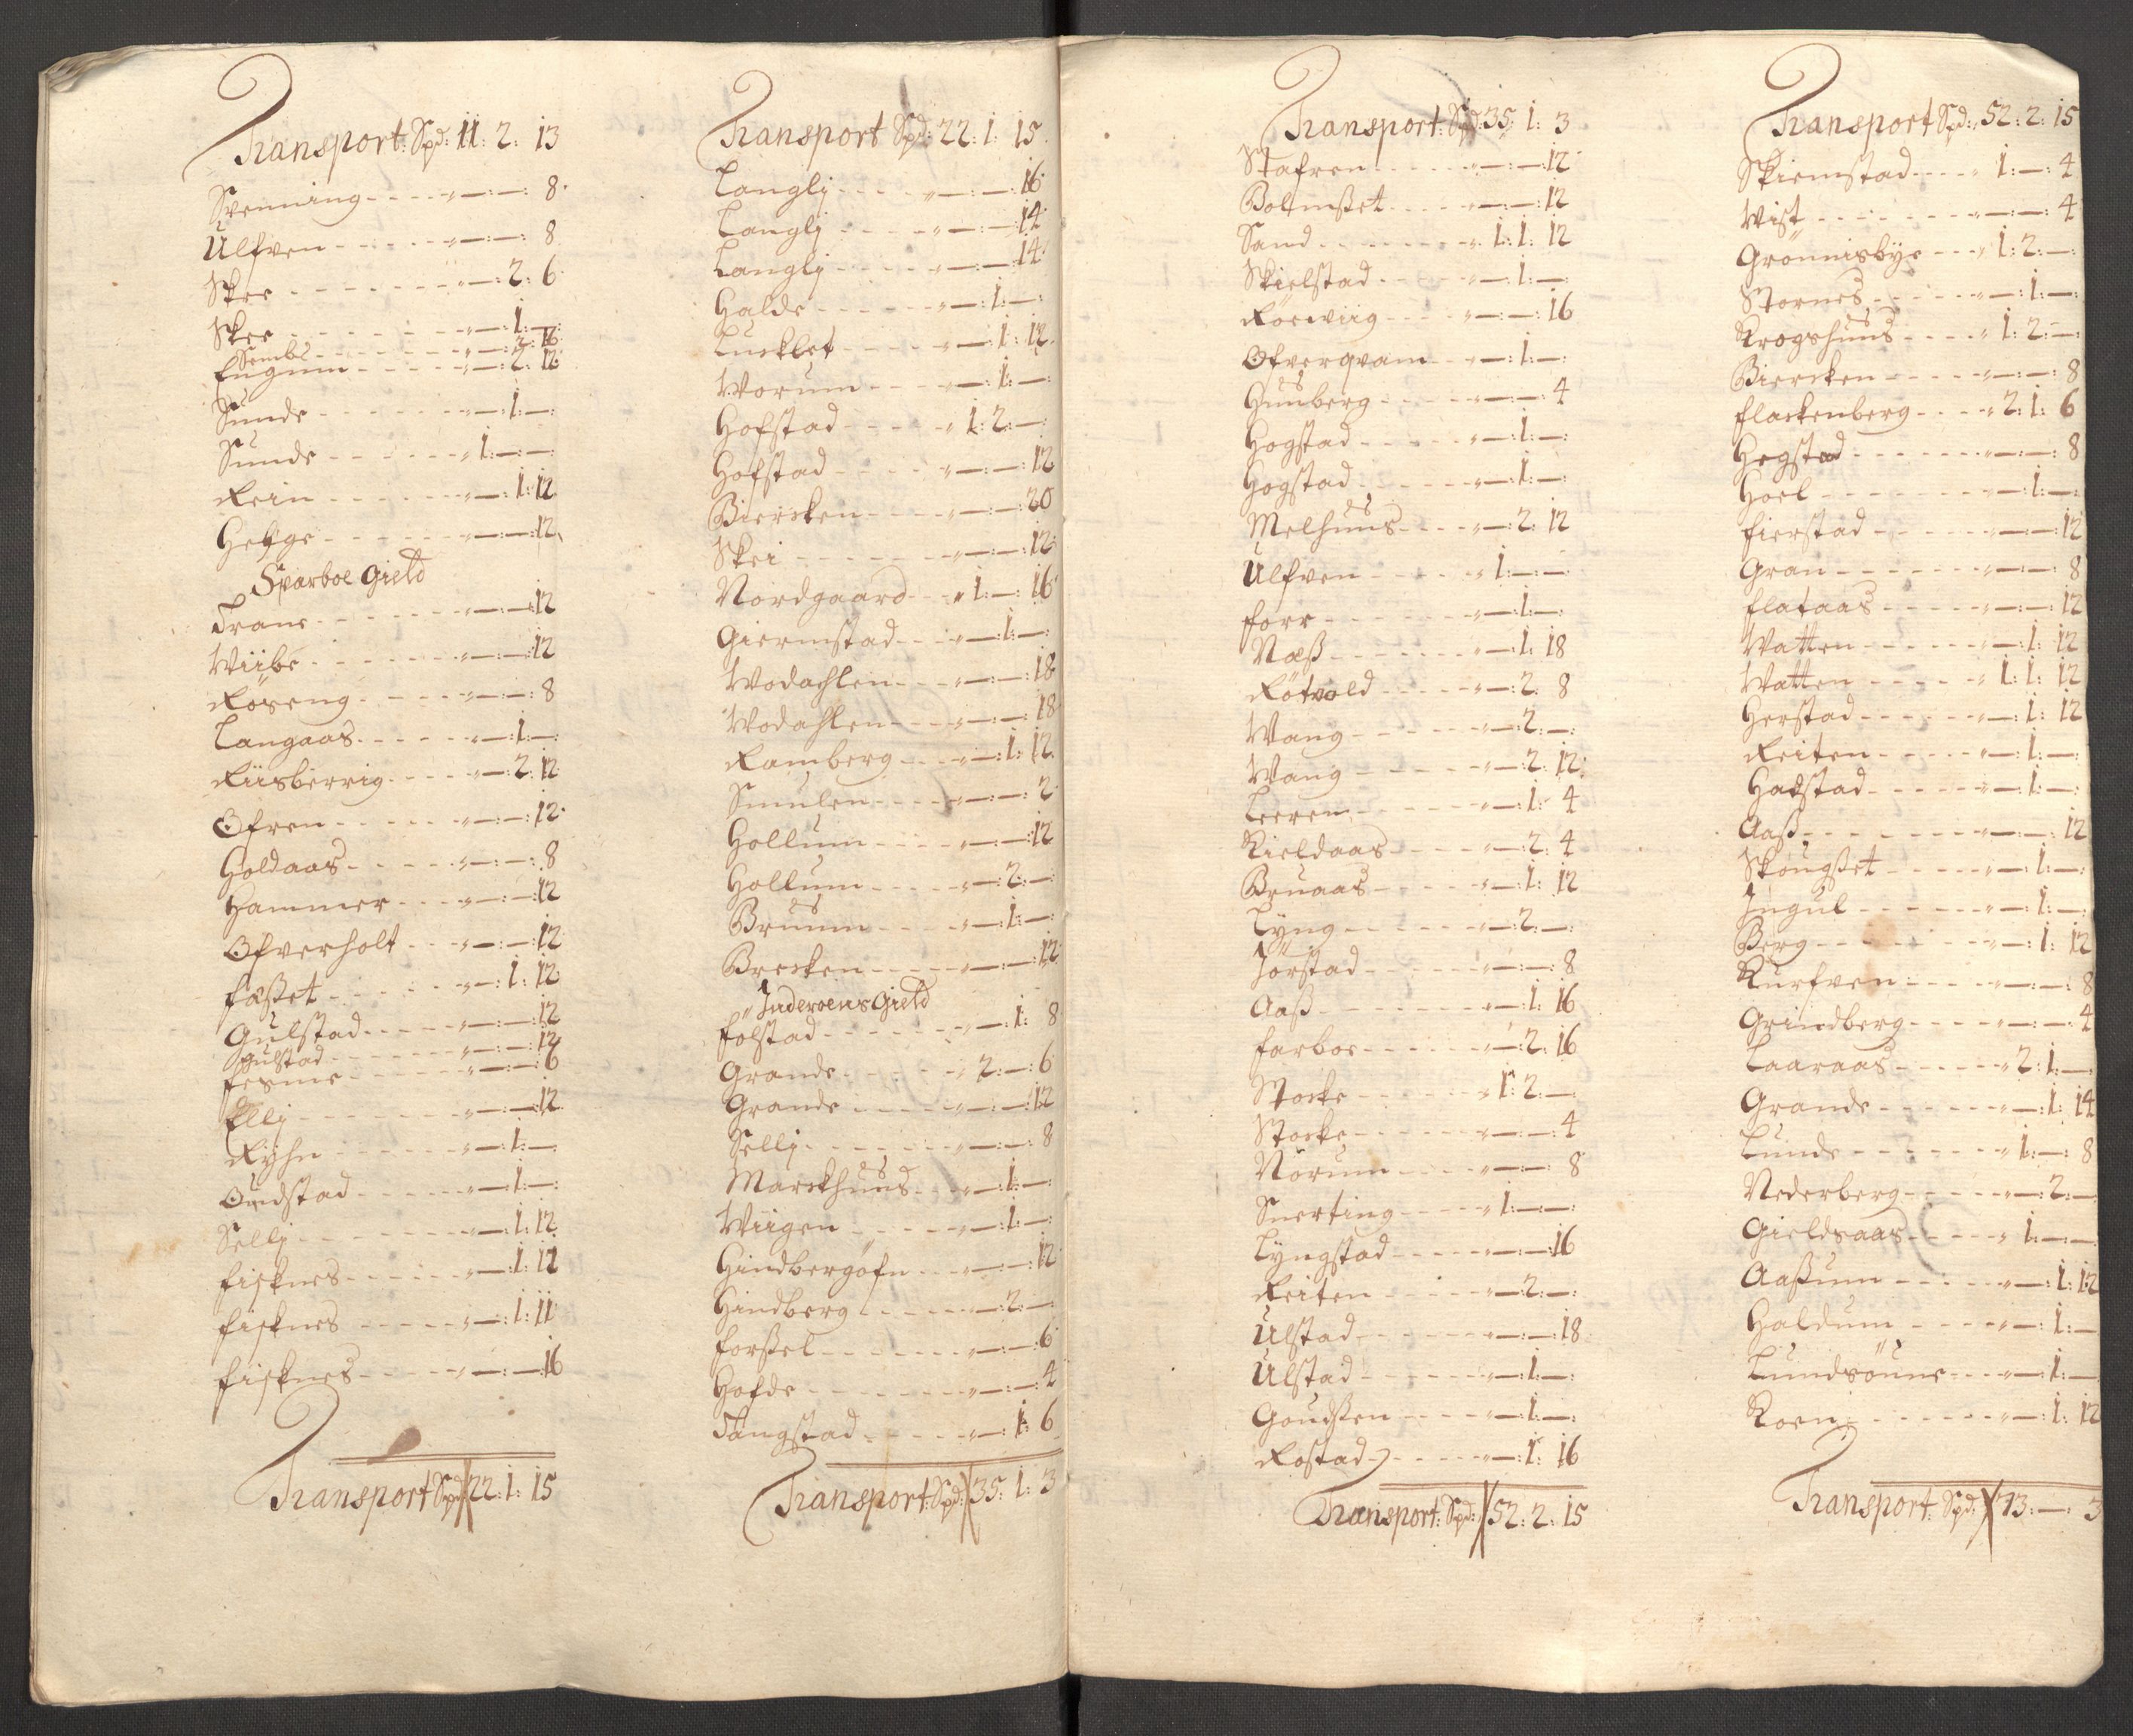 Transport: Spd: 11: 2: 13
Svenning - - - - „ — : — : 8
Ulfven - - - - „ — : — : 8
Skee - - - - „ — : 2: 6
Skee - - - - „ — : 1: —
Sembs - - - - „ — : 2: 16
Eugnum - - - - „ — : 2: 12
Sunde - - - - „ — : 1: —
Sunde - - - - „ 1: — : —
Rein - - - - „ — : 1: 12
Helge - - - - „ — : — : 12
Sparboe Gield
Trane - - - - „ — : — : 12
Wiibe - - - - „ — : — : 12
Röseng - - - - „ — : — : 8
Langaas - - - - „ — : 1: —
Riisberrig - - - - „ — : 2: 12
Ofren - - - - „ — : — : 12
Holdaas - - - - „ — : — : 8
Hammer - - - - „ — : — : 12
Ofverholt - - - - „ — : — : 12
Fåßet - - - - „ — : 1: 12
Gulstad - - - - „ — : — : 12
Gulstad - - - - „ — : — : 12
Fesme - - - - „ — : — : 6
Ellj - - - - „ — : — : 12
Ryhn - - - - „ — : 1: —
Oudstad - - - - „ — : 1: —
Sellj - - - - „ — : 1: 12
Fisknes - - - - „ — : 1: 11
Fisknes - - - - „ — : 1: 11
Fisknes - - - - „ — : — : 16
Transport Spd: 22: 1: 15
Transport Spd: 22: 1: 15
Langlj - - - - „ — : — : 16
Langlj - - - - „ — : — : 14
Langlj - - - - „ — : — : 14
Halde - - - - „ — : 1: —
Lueklet - - - - „ — : 1: 12
Worum - - - - „ — : 1: —
Hofstad - - - - „ 1: 2: —
Hofstad - - - - „ — : — : 12
Biercken - - - - „ — : — : 20
Skei - - - - „ — : — : 12
Nordgaard - - „ 1: — : 16
Giermstad - - - - „ — : 1: —
Wodahlen - - - - „ — : — : 18
Wodahlen - - - - „ — : — : 18
Ramberg - - - - „ — : 1: 12
Smulen - - - - „ — : — : 2
Hollum - - - - „ — : — : 12
Hollum - - - - „ — : 2: —
Bruum - - - - „ — : 1: —
Brecken - - - - „ — : — : 12
Inderöens Gield
Folstad - - - - „ — : 1: 8
Grande - - - - „ 2: — : 6
Grande - - - - „ — : — : 12
Sellj - - - - „ — : — : 8
Marckhuus - - - - „ — : 1: —
Wiigen - - - - „ — : 1: —
Hindbergöfn - - - - „ — : — : 12
Hindberg - - - - „ — : 2: —
Forßel - - - - „ — : — : 6
Hofde - - - - „ — : — : 4
Tangstad - - - - „ — : 1: 6
Transport: Spd: 35: 1: 3
Transport: Spd: 35: 1: 3
Stafren - - - - „ — : — : 12
Bolmßet - - - - „ — : — : 12
Sand - - - - „ 1: 1: 12
Skielstad - - - - „ — : 1: —
Roeswiig - - - - „ — : — : 16
Ofverqvam - - - - „ — : 1: —
Huuberg - - - - „ — : — : 4
Hogstad - - - - „ — : 1: —
Hogstad - - - - „ — : 1: —
Melhuus - - - - „ — : 2: 12
Ulfven - - - - „ 1: — : —
Forr - - - - „ — : 1: —
Næß - - - - „ — : 1: 18
Rötvold - - - - „ — : 2: 8
Wang - - - - „ — : 2: —
Wang - - - - „ — : 2: 12
Leeren - - - - „ — : 1: 4
Kieldaas - - - - „ — : 2: 4
Bruaas - - - - „ — : 1: 12
Lyng - - - - „ — : 2: —
Jörstad - - - - „ — : — : 8
Aaß - - - - „ — : 1: 16
Farboe - - - - „ — : 2: 16
Stocke - - - - „ 1: 2: —
Stocke - - - - „ — : — : 4
Norum - - - - „ — : — : 8
Snerting - - - - „ 1: — : —
Lyngstad - - - - „ — : — : 16
Reiten - - - - „ — : 2: —
Ulstad - - - - „ — : — : 18
Ulstad - - - - „ — : 1: —
Goudßen - - - - „ — : 1: —
Rostad - - - - „ — : 1: 16
Transport: Spd: 52: 2: 15
Transport Spd: 52: 2: 15
Skiemstad - - - - „ 1: — : 4
Wist - - - - „ — : — : 4
Grönnisbye - - - „ 1: 2: —
Stornes - - - - „ — : 1: —
Krogshuus - - - - „ 1: 2: —
Biercken - - - - „ — : — : 8
Flackenberg - - - - „ 2: 1: 6
Hegstad - - - - „ — : — : 8
Hoel - - - - „ — : 1: —
Fierstad - - - - „ — : — : 12
Gran - - - - „ — : — : 8
Flataas - - - - „ — : — : 12
Watten - - - - „ — : 1: 12
Watten - - - - „ 1: 1: 12
Herstad - - - - „ — : 1: 12
Reiten - - - - „ — : 1: —
Haəstad - - - - „ — : 1: —
Aaß - - - - „ — : — : 12
Skougßet - - - - „ — : 1: —
Ingul - - - - „ — : 1: —
Berg - - - - „ — : 1: 12
Kurfven - - - - „ — : — : 8
Grindberg - - - - „ — : — : 4
Laaraas - - - - „ 2: 1: —
Grande - - - - „ — : 1: 14
Lunde - - - - „ 1: — : 8
Nederberg - - - - „ — : 2: —
Gieldsaas - - - - „ 1: — : —
Aaßum - - - - „ — : 1: 12
Haldum - - - - „ — : 1: —
Lundsöune - - - - „ — : 1: —
Koen - - - - „ — : 1: 12
Transport: Spd: 73: — : 3